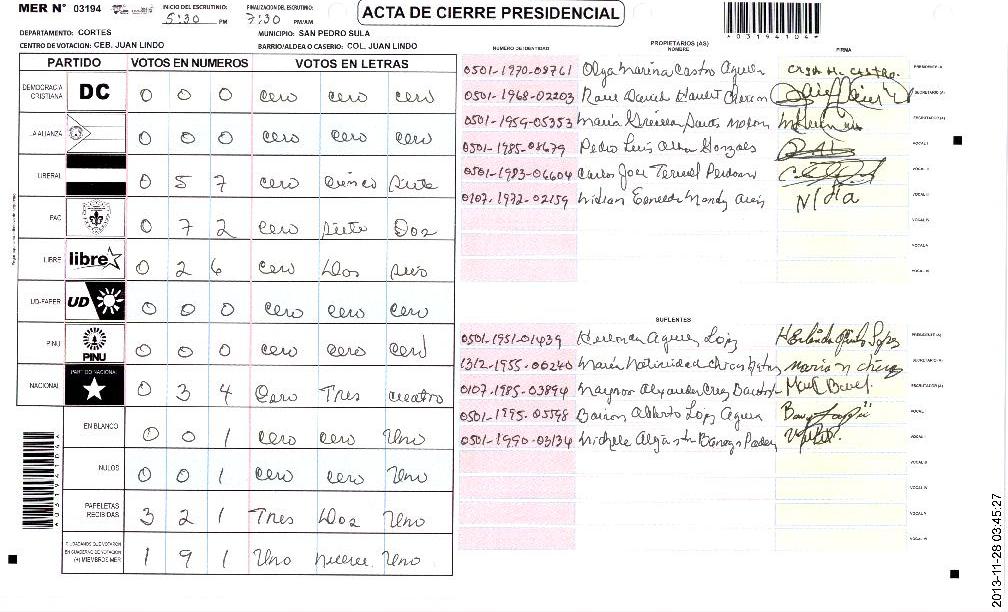 MER N° 03194
INICIO DEL ESCRUTINIO: 5:30 PM
FINALIZACION DEL ESCRUTINIO: 7:30 PM/AM
ACTA DE CIERRE PRESIDENCIAL
A03194104A
DEPARTAMENTO: CORTES
MUNICIPIO: SAN PEDRO SULA
CENTRO DE VOTACION: CEB. JUAN LINDO
BARRIO/ALDEA O CASERIO: COL. JUAN LINDO
PARTIDO VOTOS EN NUMEROS VOTOS EN LETRAS
DEMOCRACIA CRISTIANA DC 0 0 0 cero cero cero
ALIANZA 0 0 0 cero cero cero
LIBERAL 0 5 7 cero cinco siete
PAC 0 7 2 cero siete Dos
LIBRE libre 0 2 6 cero Dos seis
UD-FAPER UD 0 0 0 cero cero cero
PINU PINU 0 0 0 cero cero cero
NACIONAL PARTIDO NACIONAL 0 3 4 Cero Tres cuatro
EN BLANCO 0 0 1 cero cero Uno
NULOS 0 0 1 cero cero Uno
PAPELETAS RECIBIDAS 3 2 1 Tres Dos Uno
CIUDADANOS QUE VOTARON EN CUADERNO DE VOTACION (+) MIEMBROS MER 1 9 1 Uno nueve Uno
A03194104A
PROPIETARIOS (AS)
NUMERO DE IDENTIDAD NOMBRE FIRMA
0501-1970-08761 Olga Marina Castro PRESIDENTE/A
0501-1968-02203 SECRETARIO (A)
0501-1959-05353 Maria ESCRUTADOR (A)
0501-1985-08679 Pedro Luis Gonzales VOCAL I
0501-1983-06604 Carlos Joel Perdomo VOCAL II
0107-1972-02159 N/da VOCAL III
VOCAL IV
VOCAL V
VOCAL VI
SUPLENTES
0501-1951-01439 Lopez PRESIDENTE (A)
1312-1955-00240 Maria Natividad SECRETARIO (A)
0107-1985-03894 Alexander Cruz ESCRUTADOR (A)
0501-1995-05598 Alberto Lopez VOCAL I
0501-1990-03134 Michele VOCAL II
VOCAL III
VOCAL IV
VOCAL V
VOCAL VI
2013-11-28 03:45:27